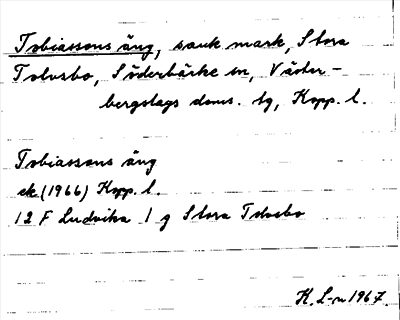 Tobiassons äng, sank mark, Stora
Tolvsbo, Söderbärke sn, Väster-
bergslags doms. tg, Kopp. l.
Tobiassons äng
ek (1966) Kopp. l.
12 F Ludvika 1 g Stora Tolvsbo
K. L-n 1967.